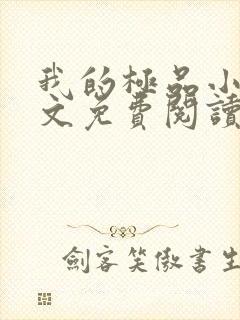 我的極品小
文免費閱讀
劍客笑傲書生